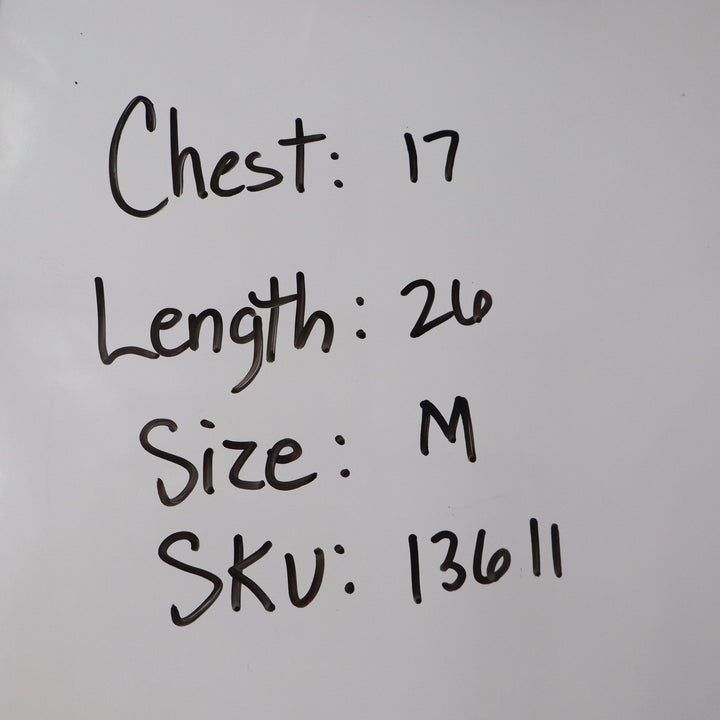 Chest: 17
Length: 26
Size: M
SKU: 13611